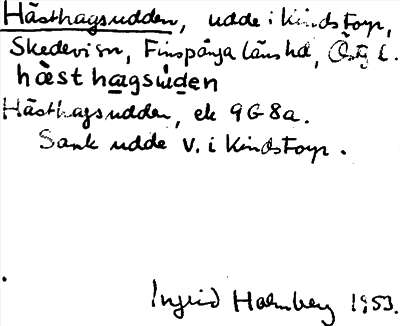 Hästhagsudden, udde i Kindstorp,
Skedevi sn, Finspånga läns hd, Östg l.
hàsthagsùden
Hästhagsudden, ek 9G8a.
Sank udde v. i Kindstorp.
Ingrid Holmberg 1953.